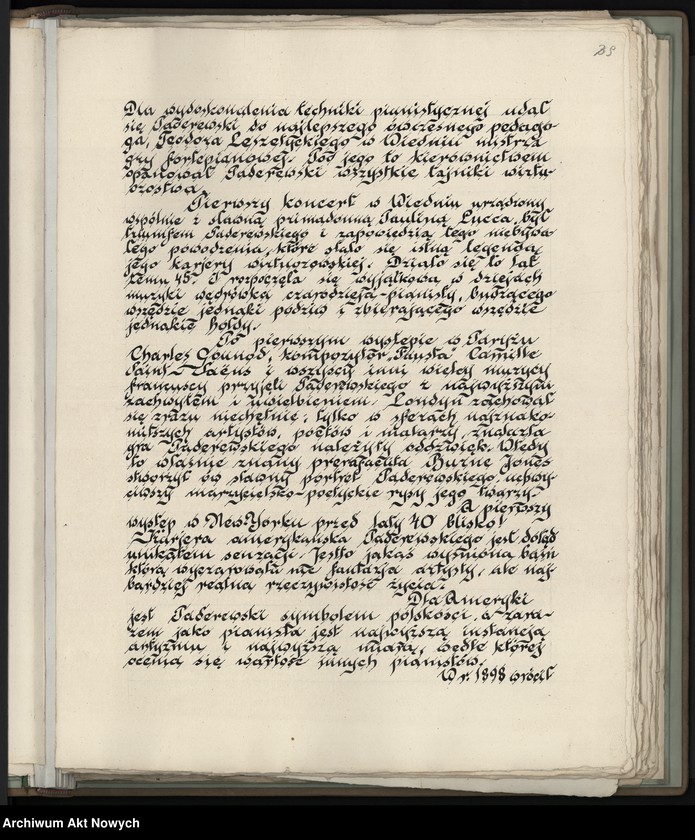 35
Dla wydoskonalenia techniki pianistycznej udał
się Paderewski do najlepszego ówczesnego pedago-
ga, Teodora Leszetyckiego w Wiedniu mistrza
gry fortepianowej. Pod jego to kierownictwem
opanował Paderewski wszystkie tajniki wirtu-
ozostwa.
Pierwszy koncert w Wiedniu urządzony
wspólnie z sławną primadonną Pauliną Lucca, był
triumfem Paderewskiego i zapowiedzią tego niebywa-
łego powodzenia, które stało się istną legendą
jego karjery wirtuozowskiej. Działo się to lat
temu 45. I rozpoczęła się wyjątkowa w dziejach
muzyki wędrówka czarodzieja-pianisty, budzącego
wszędzie jednaki podziw i zbierającego wszędzie
jednakie hołdy.
Po pierwszym występie w Paryżu
Charles Gounod, kompozytor „Fausta" Camille
Saint-Saëns i wszyscy inni wielcy muzycy
francuscy przyjęli Paderewskiego z najwyższym
zachwytem i uwielbieniem. Londyn zachował
się zrazu niechętnie; tylko w sferach najznako-
mitszych artystów, poetów i malarzy, znalazła
gra Paderewskiego należyty oddźwięk. Wtedy
to właśnie znany prerafaelita Burne Jones
stworzył ów sławny portret Paderewskiego, uchwy-
ciwszy marzycielsko-poetyckie rysy jego twarzy.
A pierwszy
występ w New-Yorku przed laty 40 blisko!
Karjera amerykańska Paderewskiego jest dotąd
unikatem senzacji. Jestto jakaś wyśniona baśń
którą wyczarowała nie fantazja artysty, ale naj-
bardziej realna rzeczywistość życia.
Dla Ameryki
jest Paderewski symbolem polskości, a zara-
zem jako pianista jest najwyższą instancją
artyzmu i najwyższą miarą, wedle której
ocenia się wartość innych pianistów.
W r. 1898 wrócił
Archiwum Akt Nowych